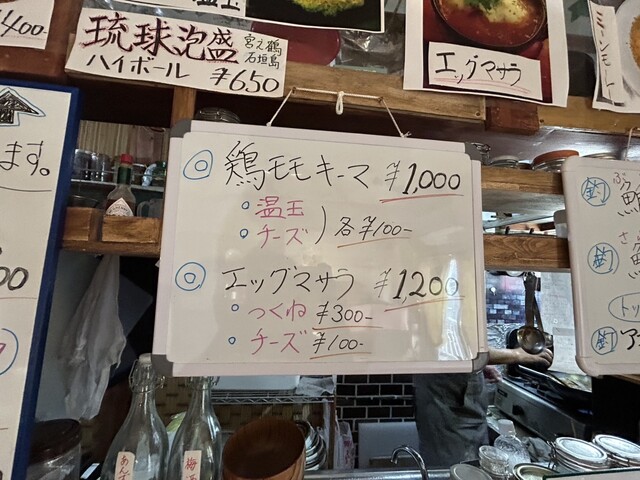 琉球泡盛
宮之鶴
石垣島
ハイボール ¥650
エッグマサラ
◎ 鶏モモキーマ ¥1,000
・温玉
・チーズ ) 各¥100-
◎ エッグマサラ ¥1,200
・つくね ¥300-
・チーズ ¥100-
ます。
あんず
梅酒